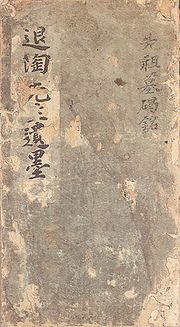 先祖墓碣銘
退陶先生遺墨